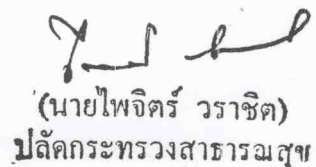 (นายไพจิตร์ วราชิต)
ปลัดกระทรวงสาธารณสุข